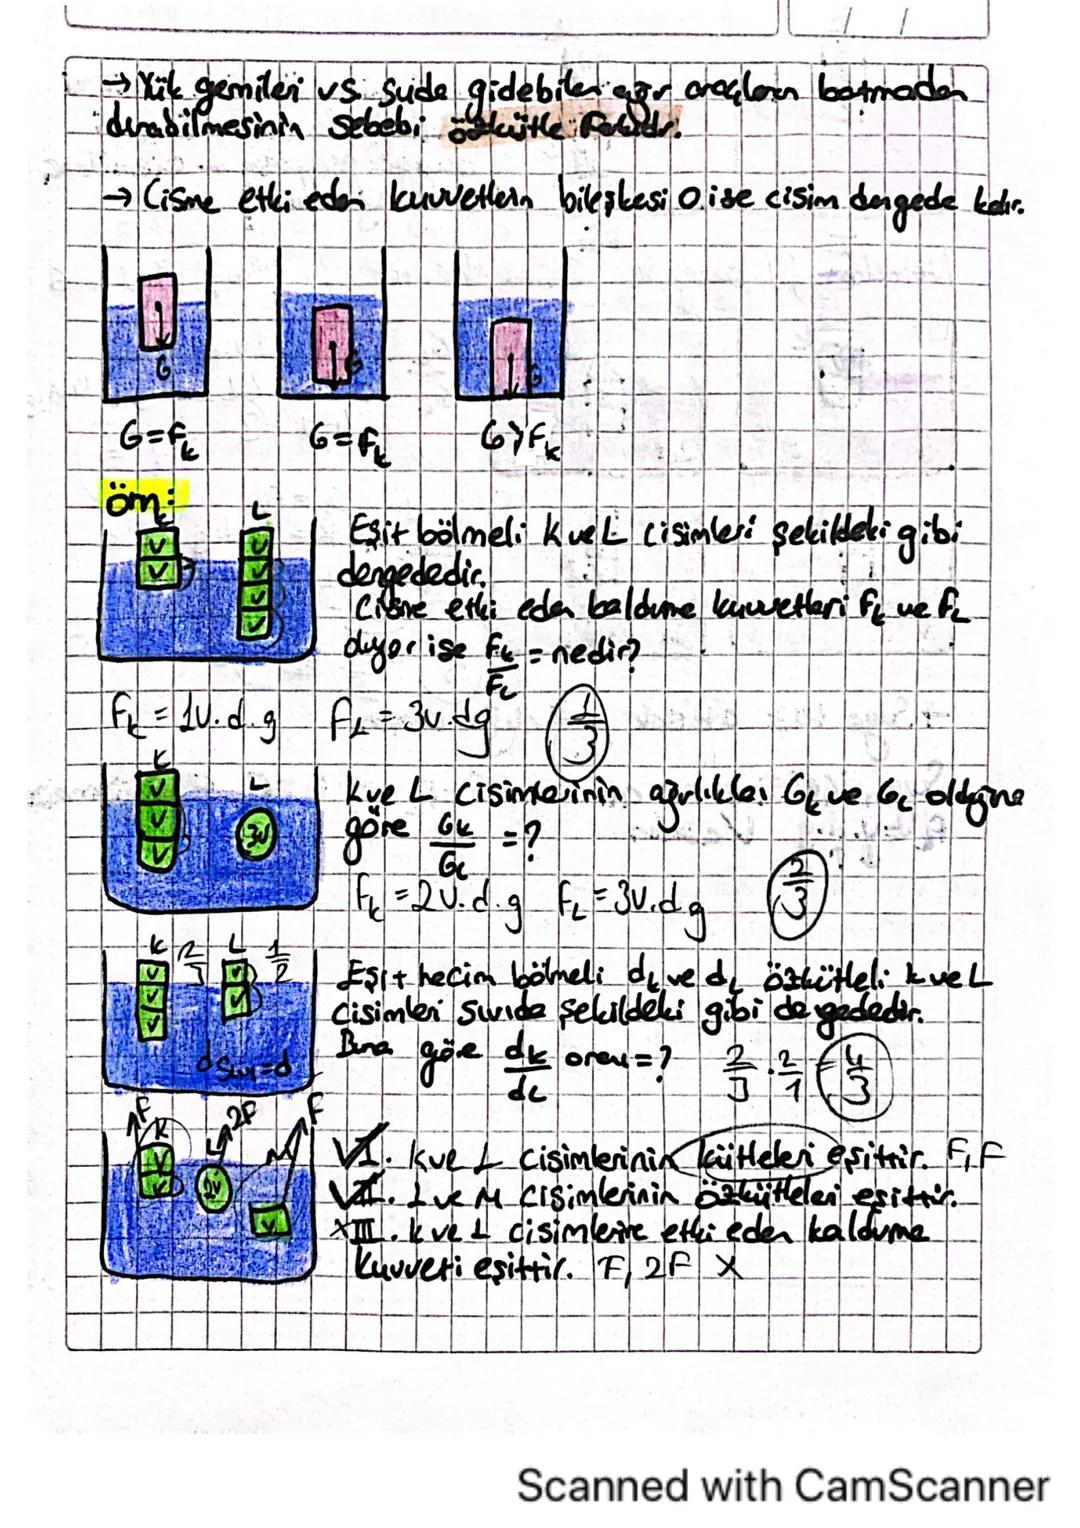 / /
→ Yük gemileri vs. suda gidebilen ağır araçların batmadan
durabilmesinin sebebi özkütle farkıdır.
→ Cisme etki eden kuvvetlerin bileşkesi 0 ise cisim dengede kalır.
G G G
G=Fk G=Fk G>Fk
örn:
K L
V V
V V
V
V
Eşit bölmeli K ve L cisimleri şekildeki gibi
dengededir.
Cisme etki eden kaldırma kuvvetleri Fk ve FL
diyor ise Fk/FL = nedir?
Fk = 1V.d.g FL = 3v.dg 1/3
K L
V
V 3V
V
K ve L cisimlerinin ağırlıkları Gk ve GL olduğuna
göre Gk/GL = ?
Fk = 2V.d.g FL = 3V.d.g 2/3
K 2/3 L 1/2
V V
V V
V
dsıvı=d
Eşit hacim bölmeli dk ve dL özkütleli k ve L
cisimleri sıvıda şekildeki gibi dengededir.
Buna göre dk/dL oranı=? 2/3 . 2/1 = 4/3
F K L 2F M F
V
V 2V V
√I. K ve L cisimlerinin kütleleri eşittir. F, F
√II. L ve M cisimlerinin özkütleleri eşittir.
XIII. K ve L cisimlerine etki eden kaldırma
kuvveti eşittir. F, 2F X
Scanned with CamScanner